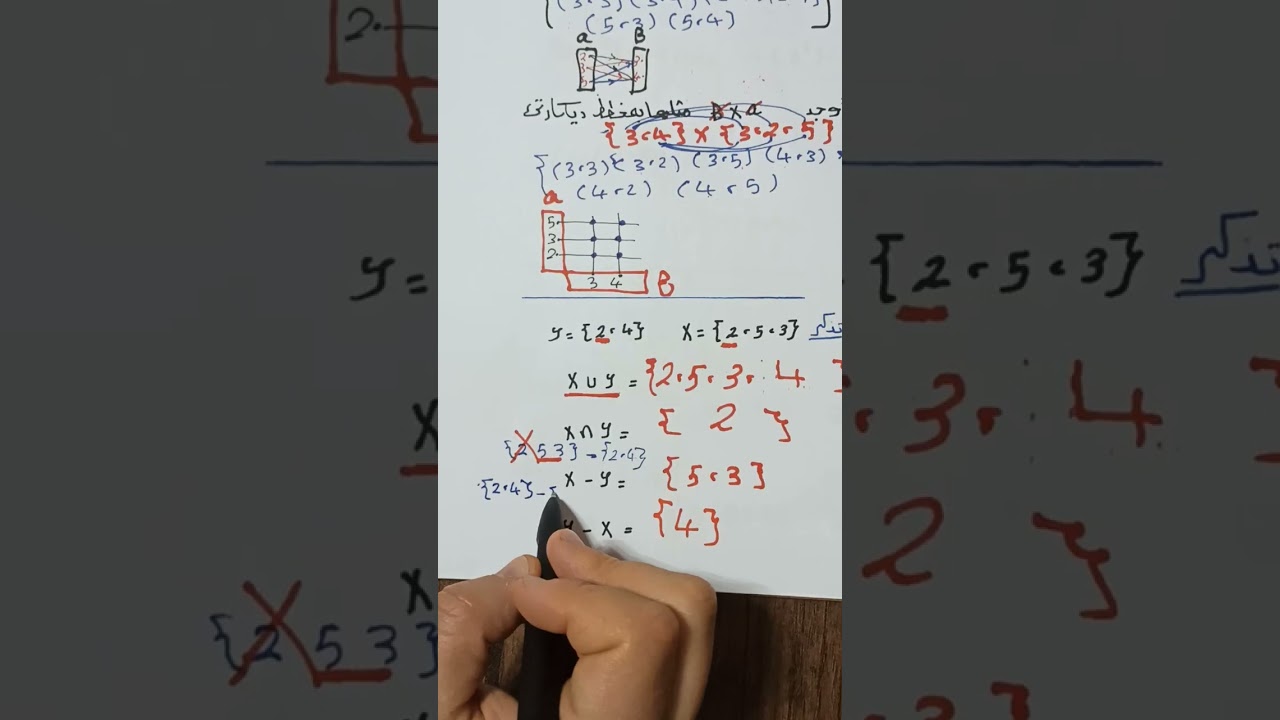 (5،3) (5،4)
a B
أوجد B x a مثلها بمخطط ديكارتي
{3،4} x {3،2،5}
{(3،3) (3،2) (3،5) (4،3)
(4،2) (4،5)
a
5
3
2
3 4 B
تذكر X = {2،5،3} y = {2،4}
X ∪ y = {2،5،3،4}
X ∩ y = {2}
{2 5 3} - {2،4}
X - y = {5،3}
{2،4} - {
y - X = {4}